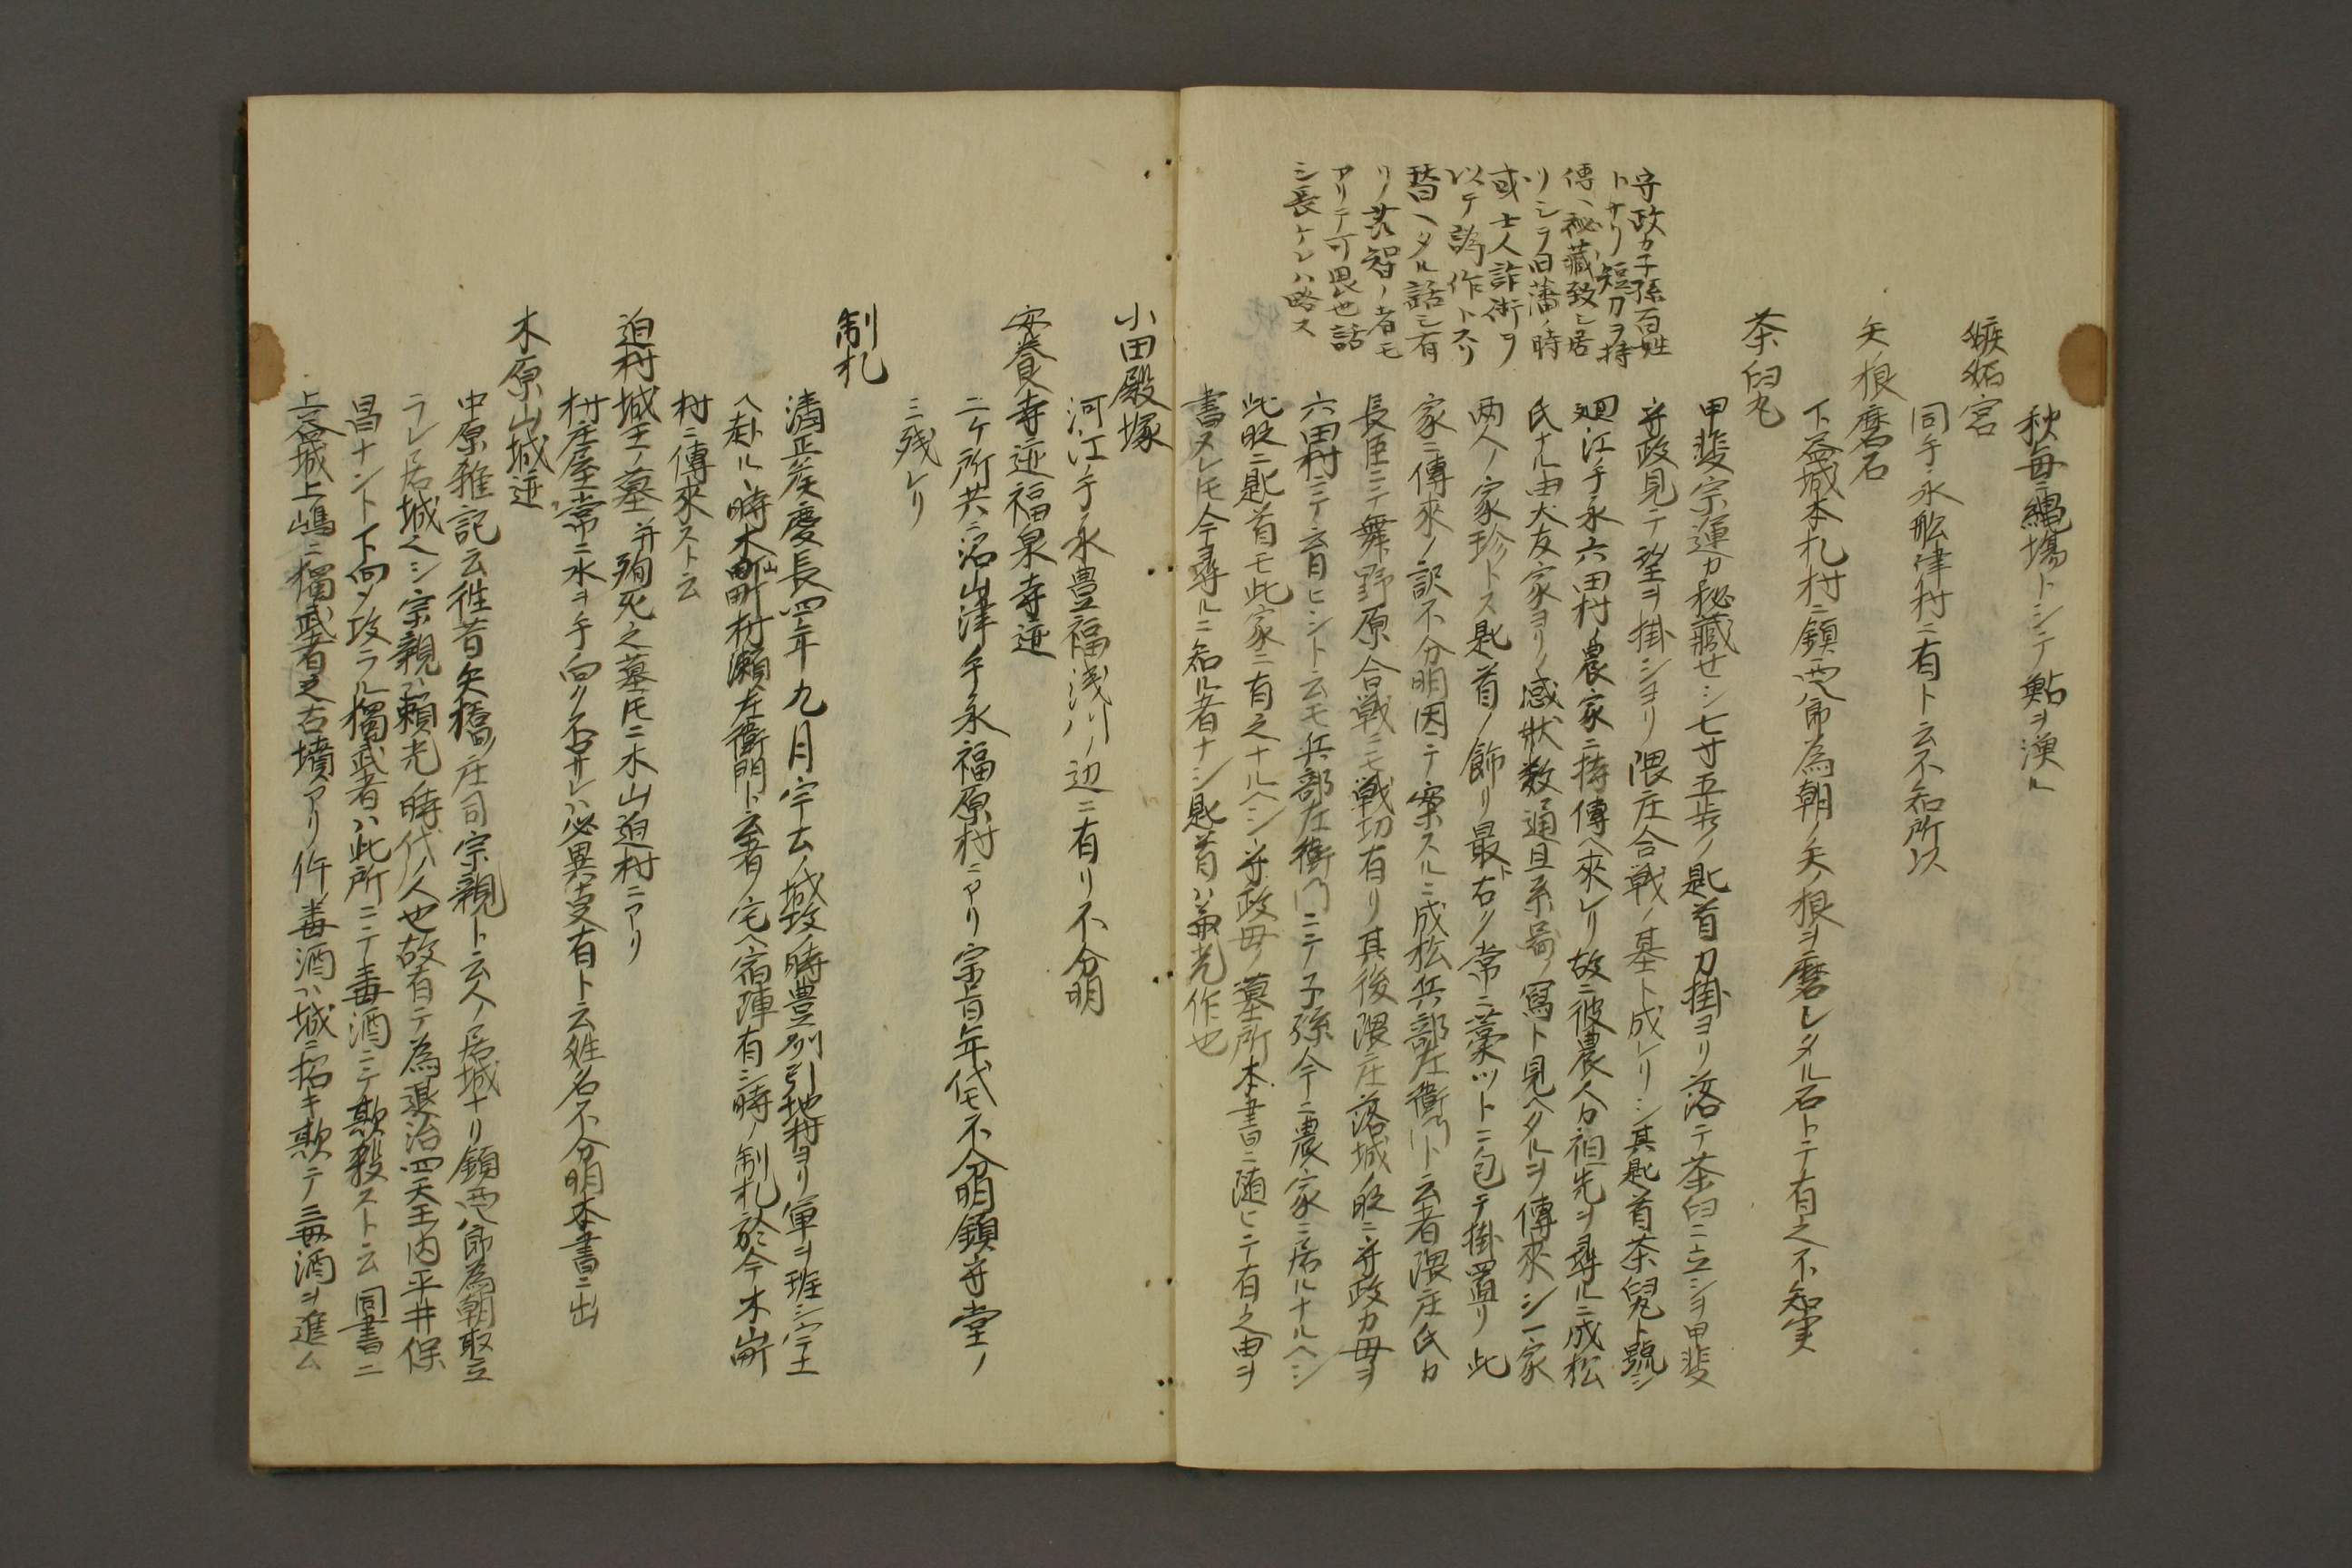 秋毎ニ縄場トシテ鮎ヲ漁ル
嫉妬宮
同手永舩津村ニ有ト云不知所以
矢根磨石
下益城本札村ニ鎮西八郎為朝ノ矢ノ根ヲ磨レタル石トテ有之不知実
茶臼丸
甲斐宗運カ秘蔵セシ七寸五歩ノ匙首刀掛ヨリ落テ茶臼ニ立シヲ甲斐
守政見テ望ヲ掛シヨリ隈庄合戦ノ基ト成レリシ其匙首茶臼丸ト号シ
廻江手永六田村ノ農家ニ持傳ヘ來レリ故ニ彼農人カ祖先ヲ尋ルニ成松
氏ナル由大友家ヨリノ感状数通且系図ノ寫ト見ヘタルヲ傳來シ一家
两人ノ家珍トス匙首ノ飾リ最ト右ク常ニ藁ツトニ包テ掛置リ此
家ニ傳來ノ訳不分明因テ案スルニ成松兵部左衛門ト云者隈庄氏カ
長臣ニテ舞野原合戦ニモ戦功有リ其後隈庄落城ノ砌ニ守政カ母ヲ
六田村ニテ害ヒシト云モ兵部左衛門ニテ子孫今ニ農家ニ居ルナルヘシ
此砌ニ匙首モ此家ニ有之ナルヘシ守政母ノ墓所本書ニ随ヒテ有之由ヲ
書スレ𪜈今尋ルニ知ル者ナシ匙首ハ兼光作也
守政カ子孫百姓
トナリ短刀ヲ持
傳ヘ秘蔵致シ居
リシヲ旧藩ノ時
或士人詐術ヲ
以テ偽作トスリ
替ヘタル話シ有
リノ其智ノ者モ
アリテ可畏也話
シ長ケレハ略ス
小田殿塚
河江手永豊福浅川ノ辺ニ有リ不分明
安養寺迹福泉寺迹
二ケ所共ニ沼山津手永福原村ニアリ宗旨年代モ不分明鎮守堂ノ
ミ残レリ
制札
清正矦慶長四年九月宇土ノ城攻ノ時豊列引地村ヨリ軍ヲ班シ宇土
ヘ赴ルヽ時木山町村瀬左衛門ト云者ノ宅ヘ宿陣有シ時ノ制札於今木山町
村ニ傳來スト云
迫村城主ノ墓并殉死之墓𪜈ニ木山迫村ニアリ
村庄屋常ニ水ヲ手向ク不然レハ必異変有ト云姓名不分明本書ニ出
木原山城迹
中原雑記云徃昔矢橋ノ庄司宗親ト云人ノ居城ナリ鎮西八郎為朝取立
ラレ居城ヘシ宗親ハ頼光ノ時代ノ人也故有テ為退治四天王ノ内平井保
昌ナント下向メ攻ラル獨武者ハ此所ニテ毒酒ニテ欺殺ストト云同書ニ
上益城上嶋ニ獨武者之古墳アリ件ノ毒酒ハ城ニ招キ欺テ毒酒ヲ進ム